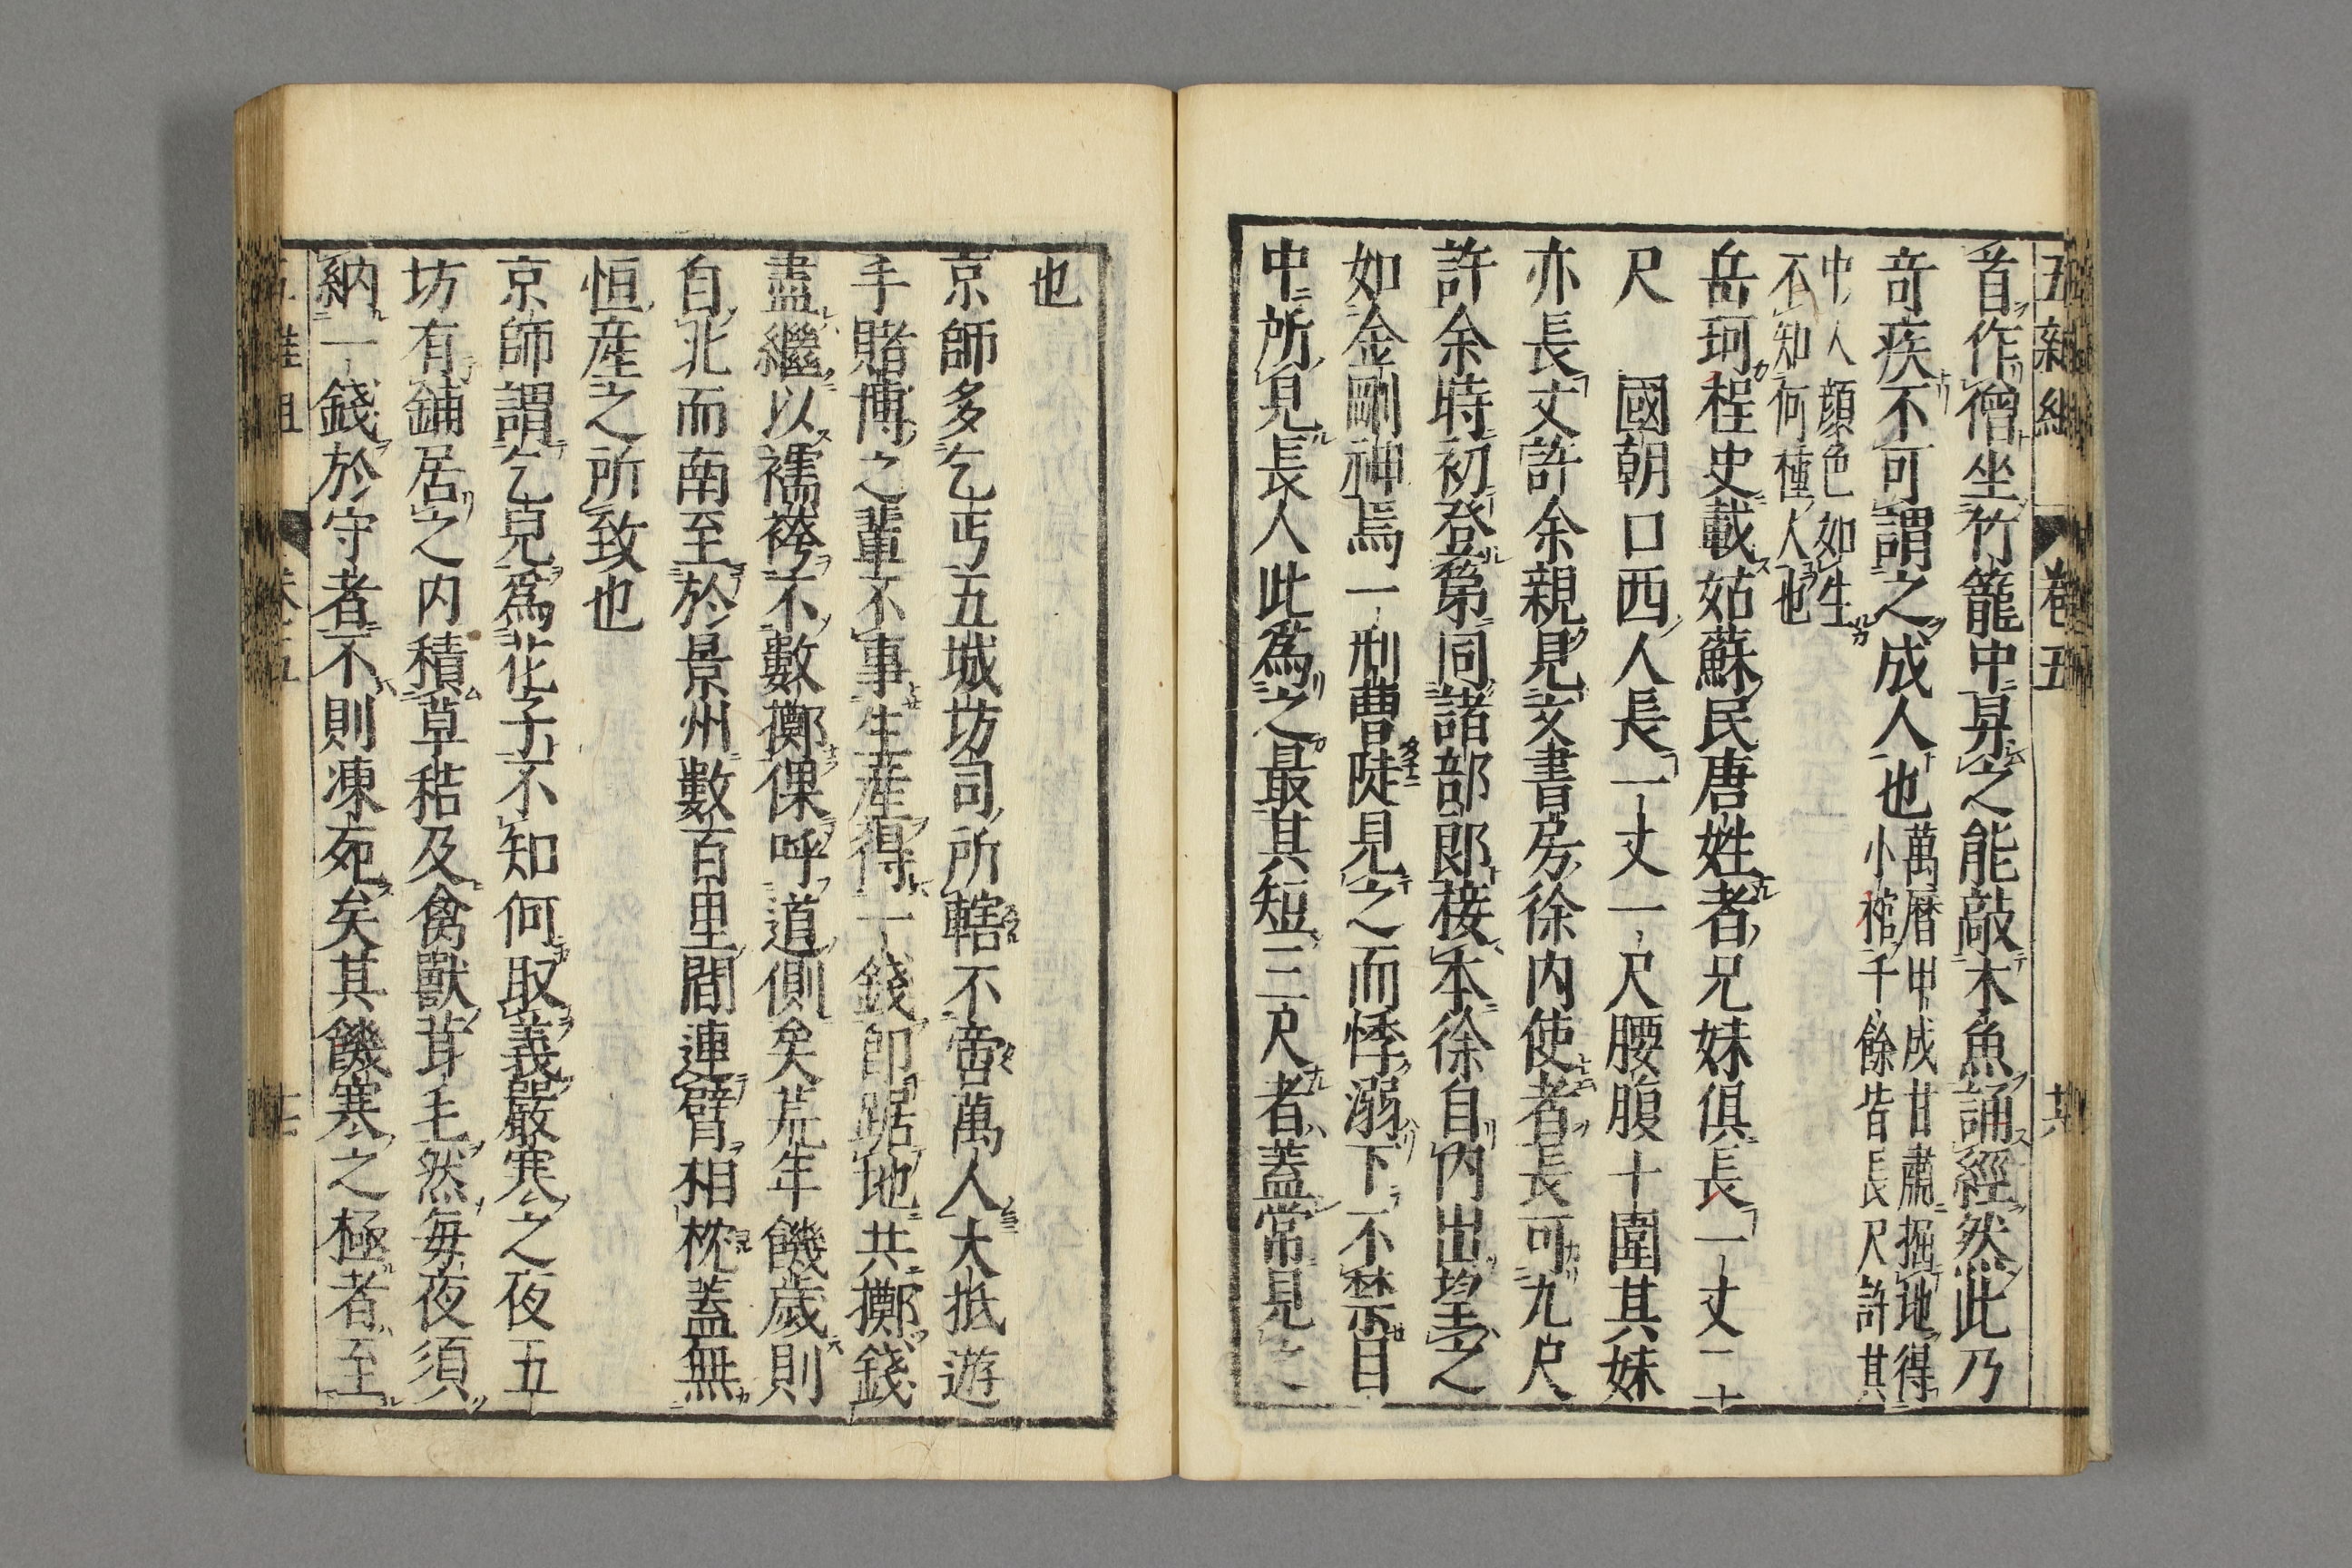 首作僧坐竹籠中舁之能敲木魚誦經然此乃
奇疾不可謂之成人也萬曆甲戌甘肅掘地得
小棺千餘皆長尺許其
中人顔色如生
不知何種人也
岳珂桯史載姑蘇民唐姓者兄妹俱長一丈二
尺　國朝口西人長一丈一尺腰腹十圍其妹
亦長丈許余親見文書房徐内使者長可九尺
許余時初登第同諸部郎接本徐自内出望之
如金剛神焉一刑曹陡見之而悸溺下不禁目
中所見長人此爲之最其短三尺者蓋常見之
也
京師多乞丐五城坊司所轄不啻萬人大抵遊
手賭博之輩不事生産得一錢即踞地共擲錢
盡繼以襦袴不數擲倮呼道側矣荒年饑歲則
自北而南至於景州數百里間連臂相枕蓋無
恒産之所致也
京師謂乞兒爲花子不知何取義嚴寒之夜五
坊有鋪居之内積草秸及禽獸茸毛然毎夜須
納一錢於守者不則凍死矣其饑寒之極者至
卷五